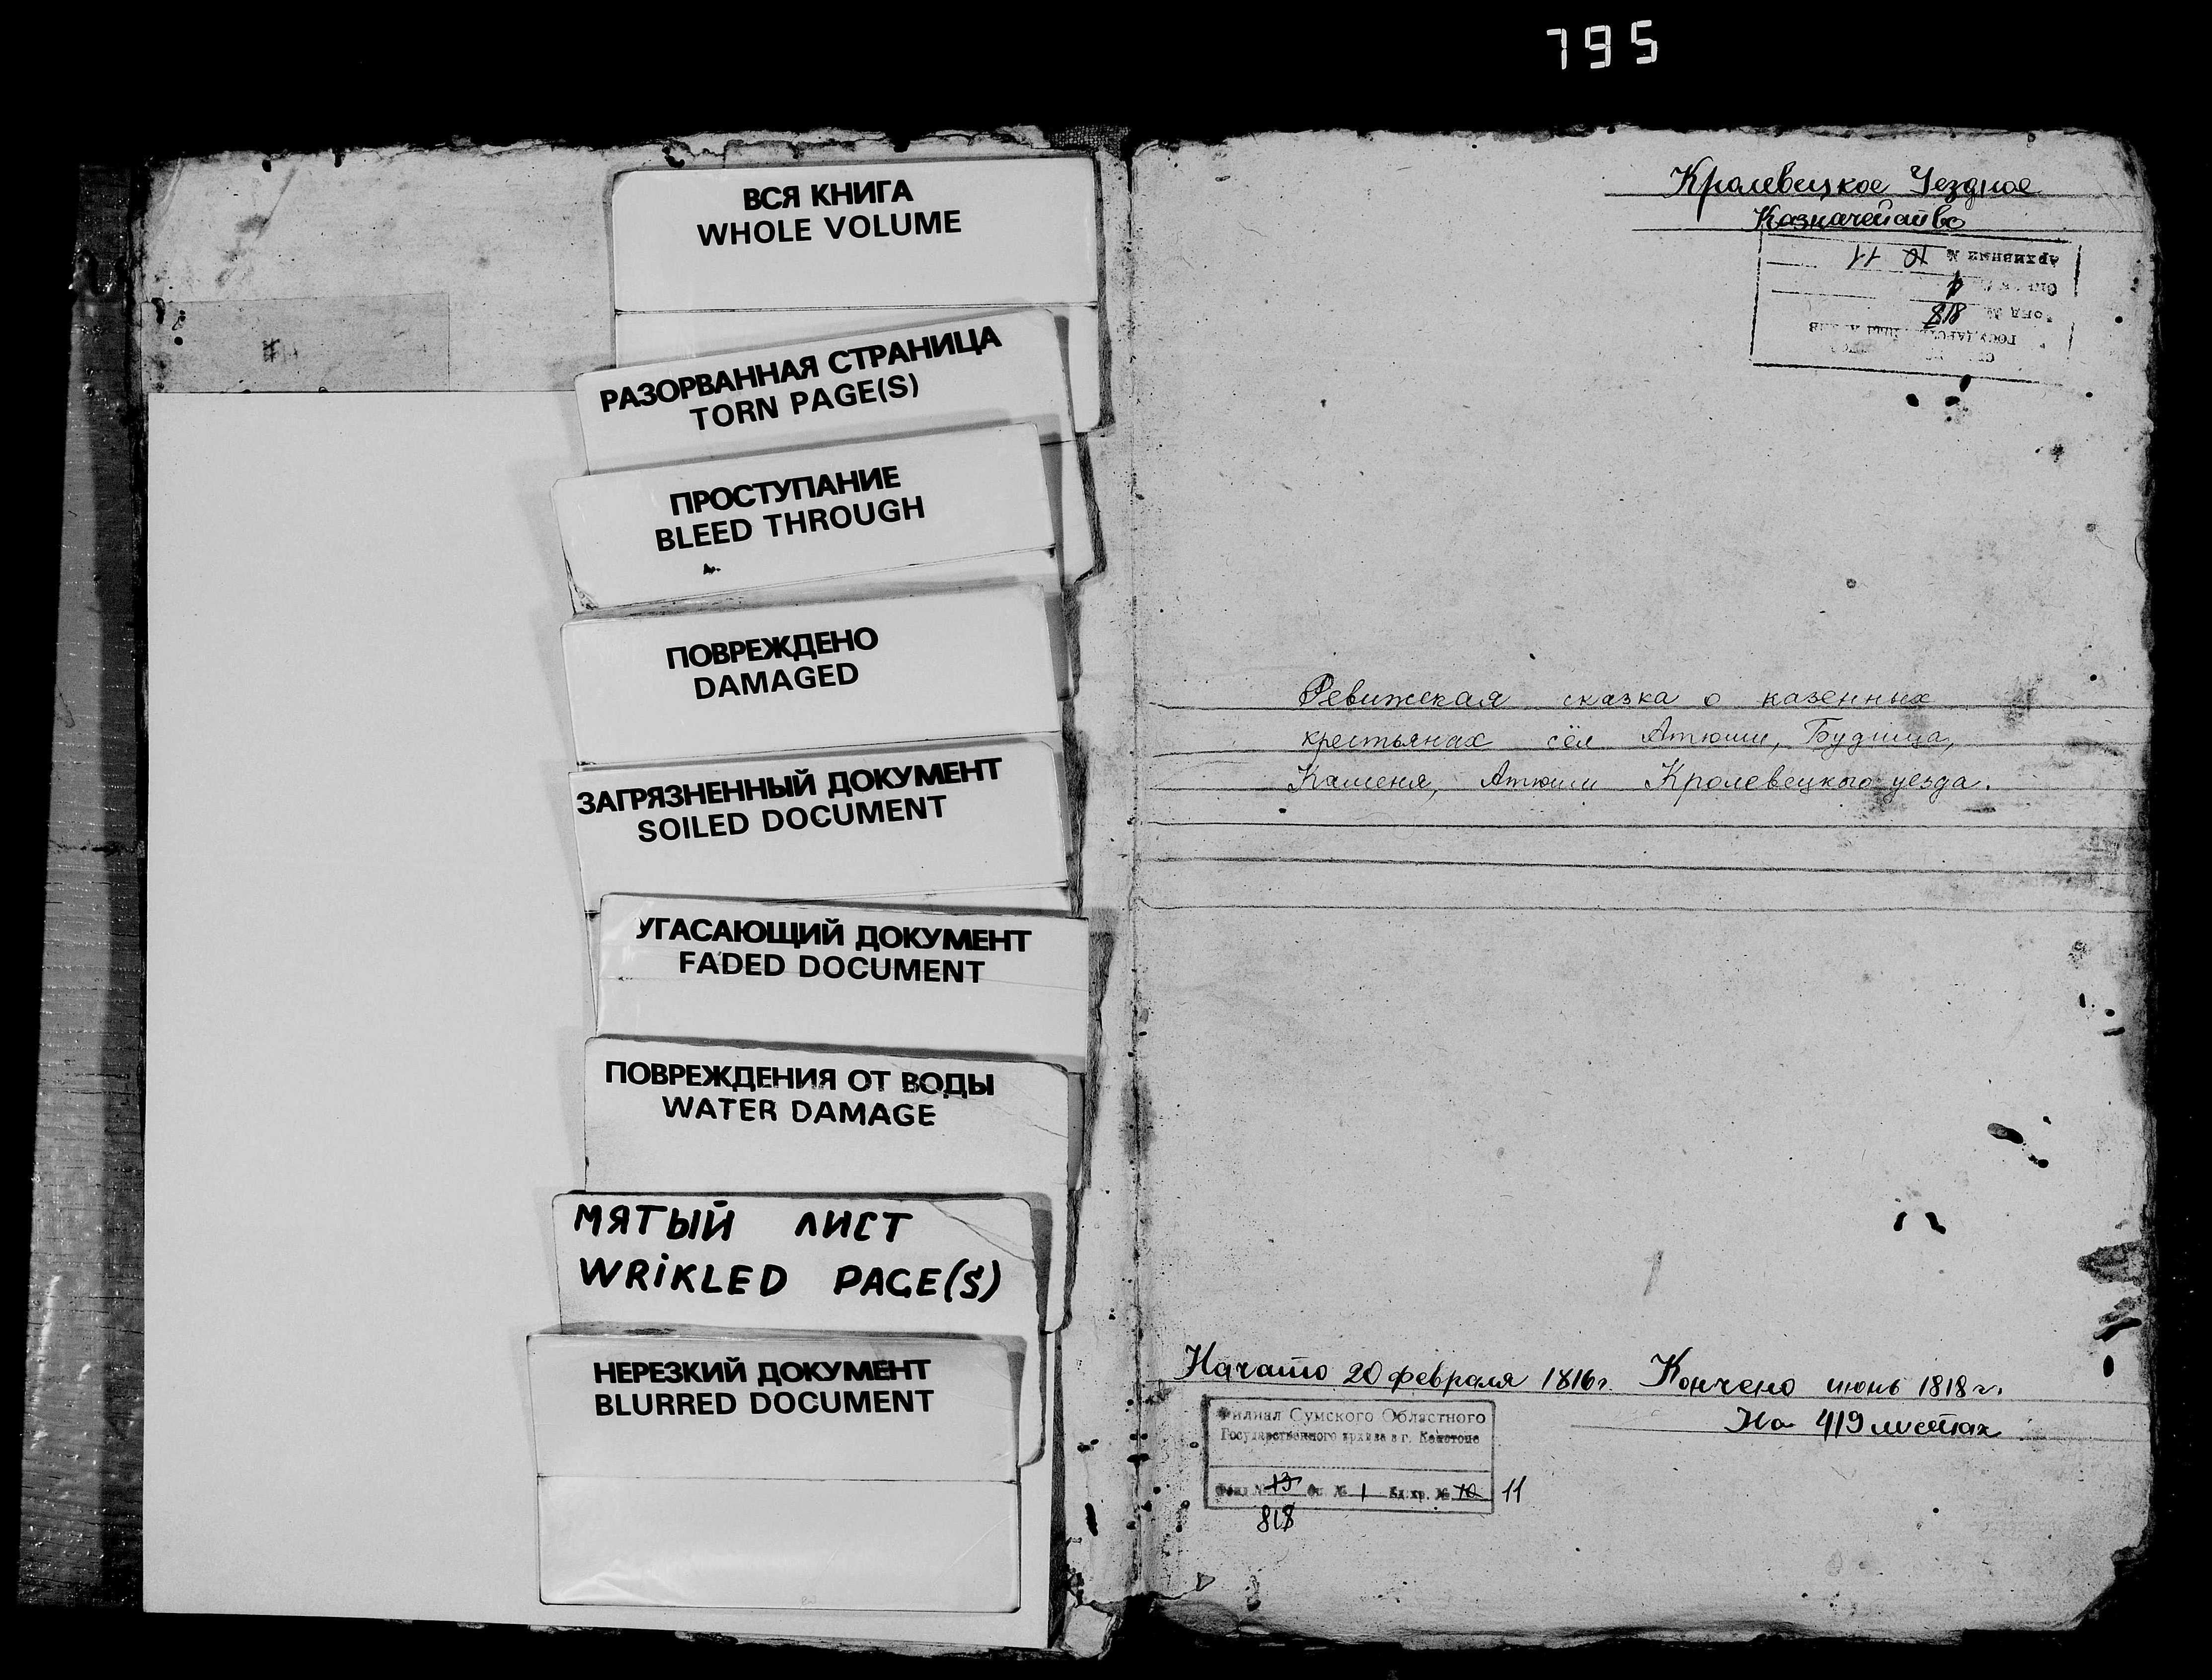 795
ВСЯ КНИГА
WHOLE VOLUME
РАЗОРВАННАЯ СТРАНИЦА
TORN PAGE(S)
ПРОСТУПАНИЕ
BLEED THROUGH
ПОВРЕЖДЕНО
DAMAGED
ЗАГРЯЗНЕННЫЙ ДОКУМЕНТ
SOILED DOCUMENT
УГАСАЮЩИЙ ДОКУМЕНТ
FADED DOCUMENT
ПОВРЕЖДЕНИЯ ОТ ВОДЫ
WATER DAMAGE
МЯТЫЙ ЛИСТ
WRIKLED PAGE(S)
НЕРЕЗКИЙ ДОКУМЕНТ
BLURRED DOCUMENT
Кролевецкое Уездное
Казначейство
Архивный № 10 11
818
Ревижская сказка о казенных
крестьянах сёл Атюши, Будища,
Каменя, Атюши Кролевецкого уезда.
Начато 20 февраля 1816 г. Кончено июнь 1818 г.
На 419 листах
Филиал Сумского Областного
Государственного архива в г. Конотопе
Фонд № 13 Оп. № 1 Ед. хр. № 10 11
818